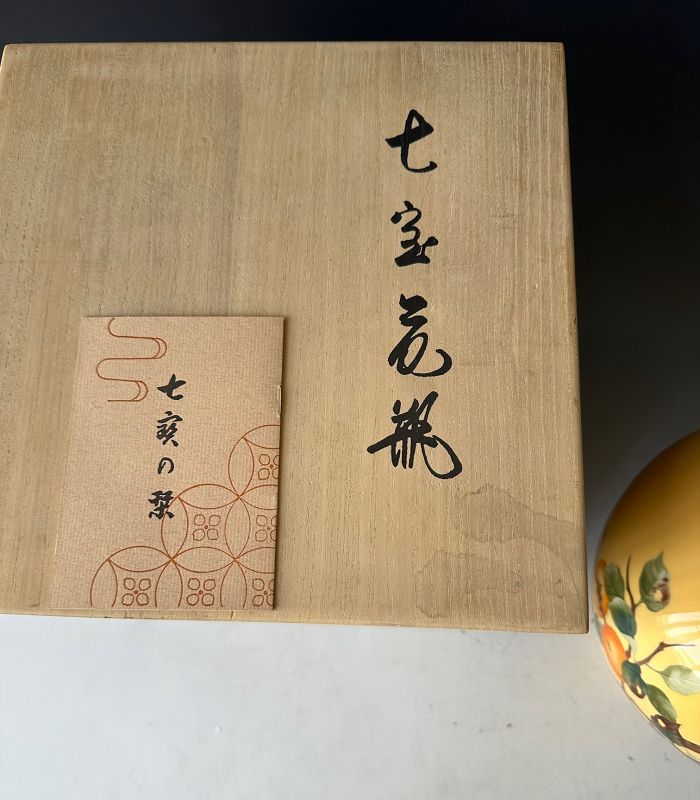 七宝花瓶
七寳の栞